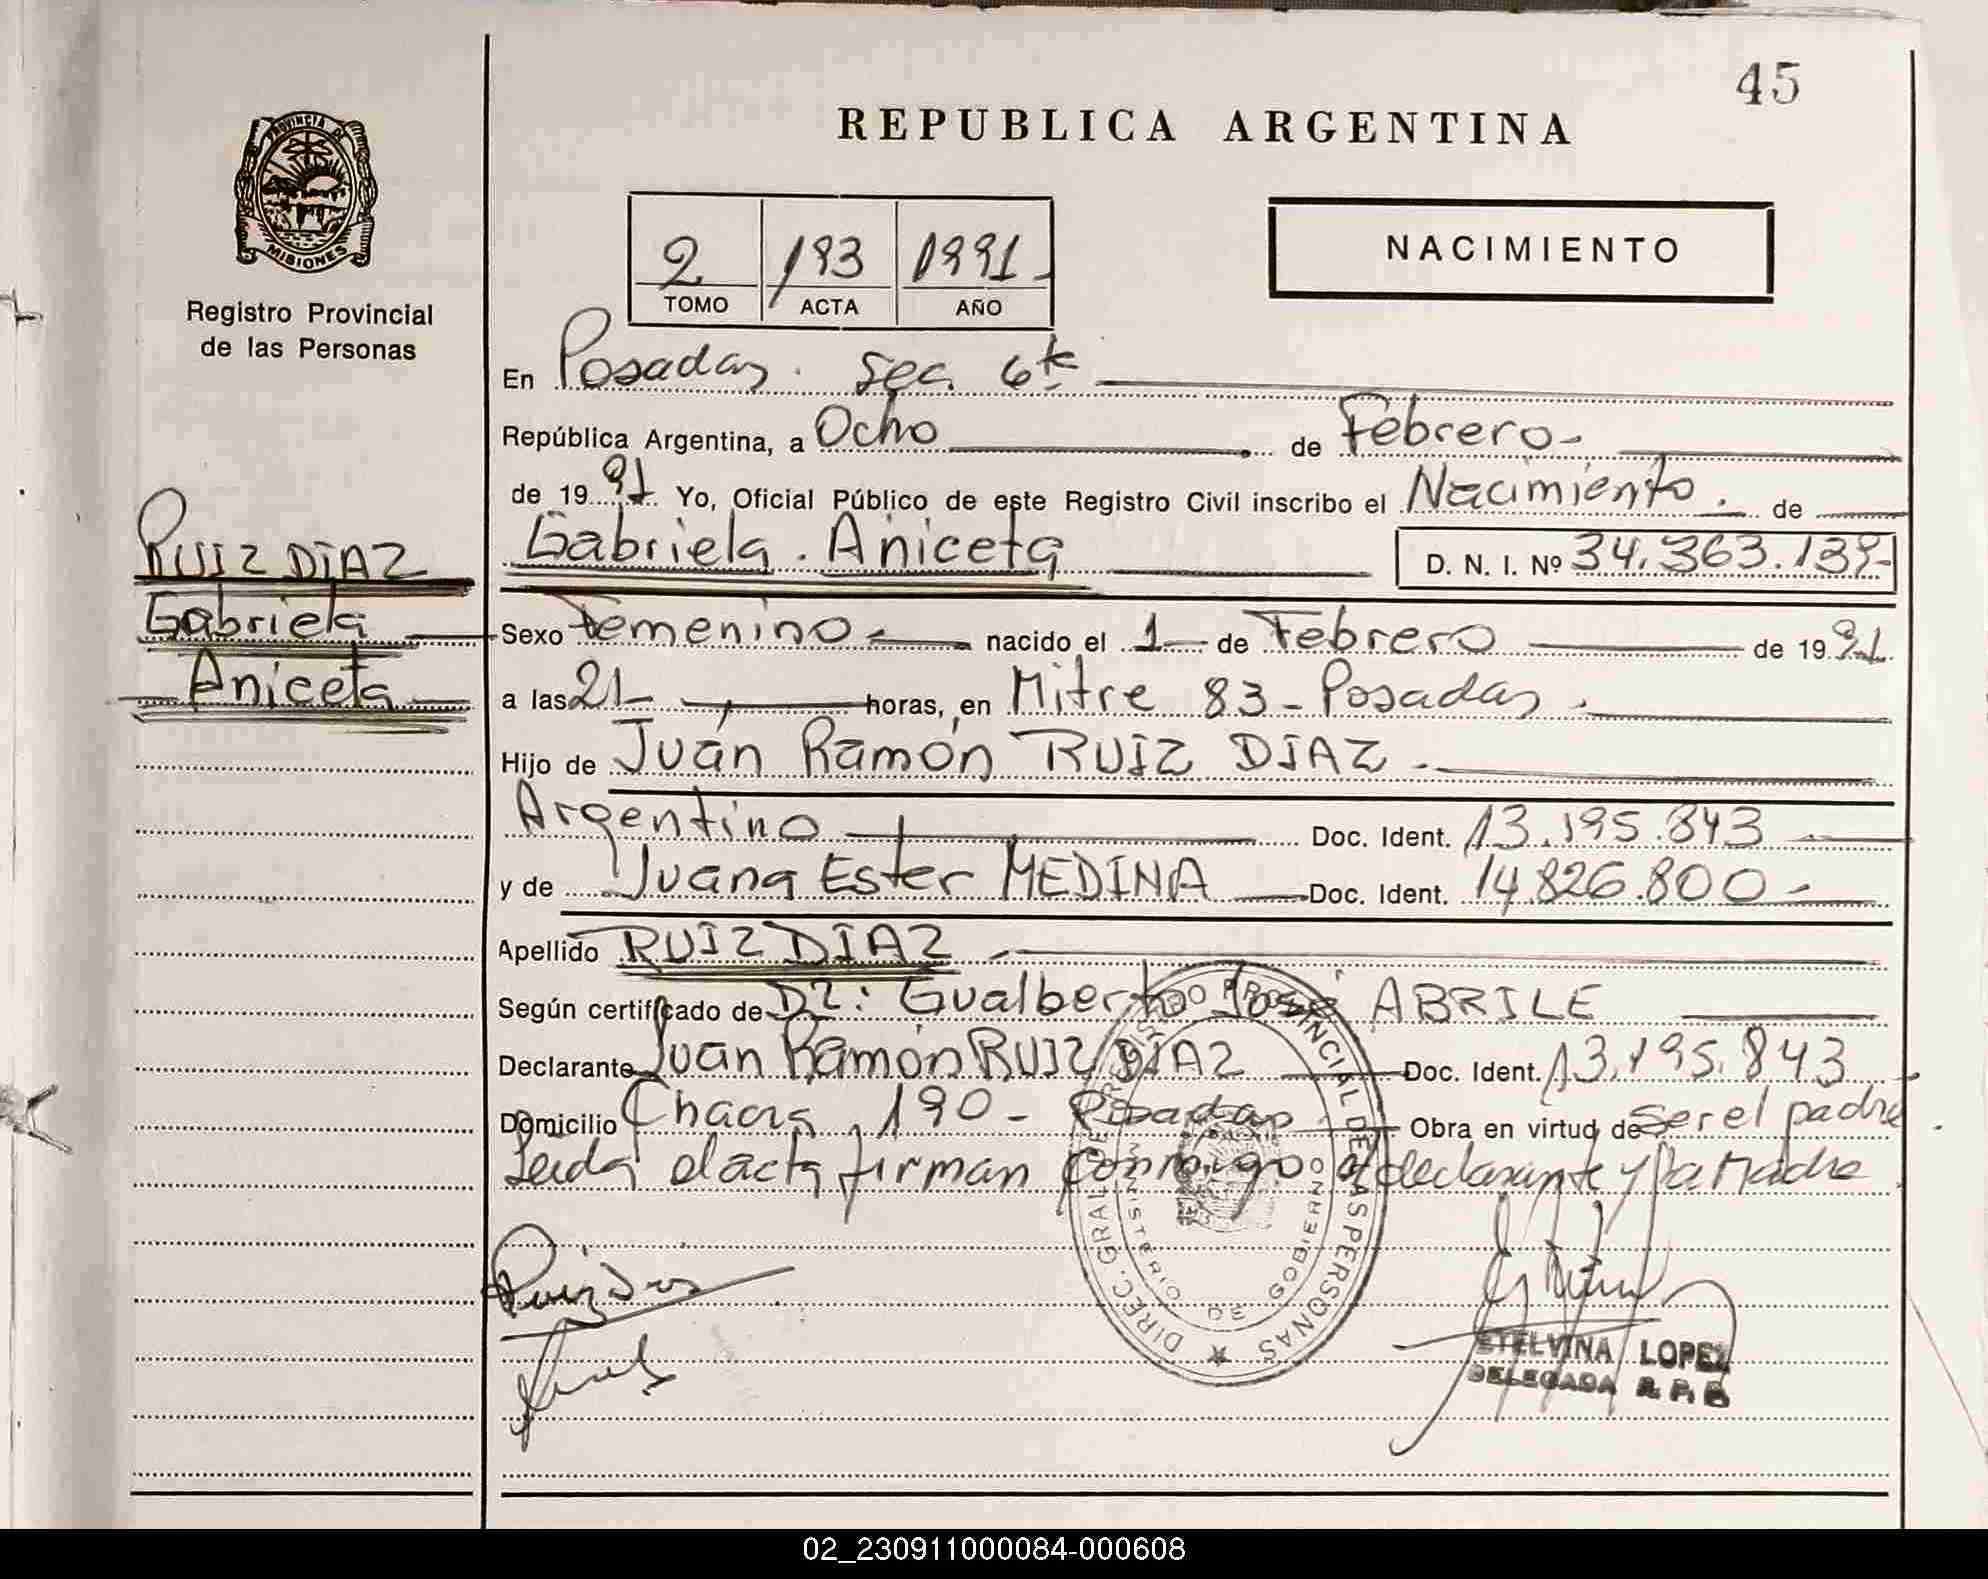 45
REPUBLICA ARGENTINA
PROVINCIA DE
MISIONES
Registro Provincial
de las Personas
2 193 1991-
TOMO ACTA AÑO
NACIMIENTO
En Posadas. Sec. 6ta
República Argentina, a Ocho de Febrero-
de 1991 Yo, Oficial Público de este Registro Civil inscribo el Nacimiento. de
Gabriela. Aniceta D. N. I. Nº 34.363.139-
RUIZ DIAZ
Gabriela
Aniceta
Sexo Femenino- nacido el 1 de Febrero de 1991.
a las 21 horas, en Mitre 83 - Posadas.
Hijo de Juan Ramón RUIZ DIAZ.
Argentino Doc. Ident. 13.195.843
y de Juana Ester MEDINA Doc. Ident. 14.826.800-
Apellido RUIZ DIAZ-
Según certificado de Dr: Gualberto José ABRILE
Declarante Juan Ramón RUIZ DIAZ Doc. Ident. 13.195.843
Domicilio Chacra 190 - Posadas Obra en virtud de ser el padre
Leida el acta firman conmigo el declarante y la Madre
Ruiz Diaz
DIREC. GRAL. DE REGISTRO PROVINCIAL DE LAS PERSONAS
MINISTERIO DE GOBIERNO
ETELVINA LOPEZ
DELEGADA R. P. P.
02_230911000084-000608